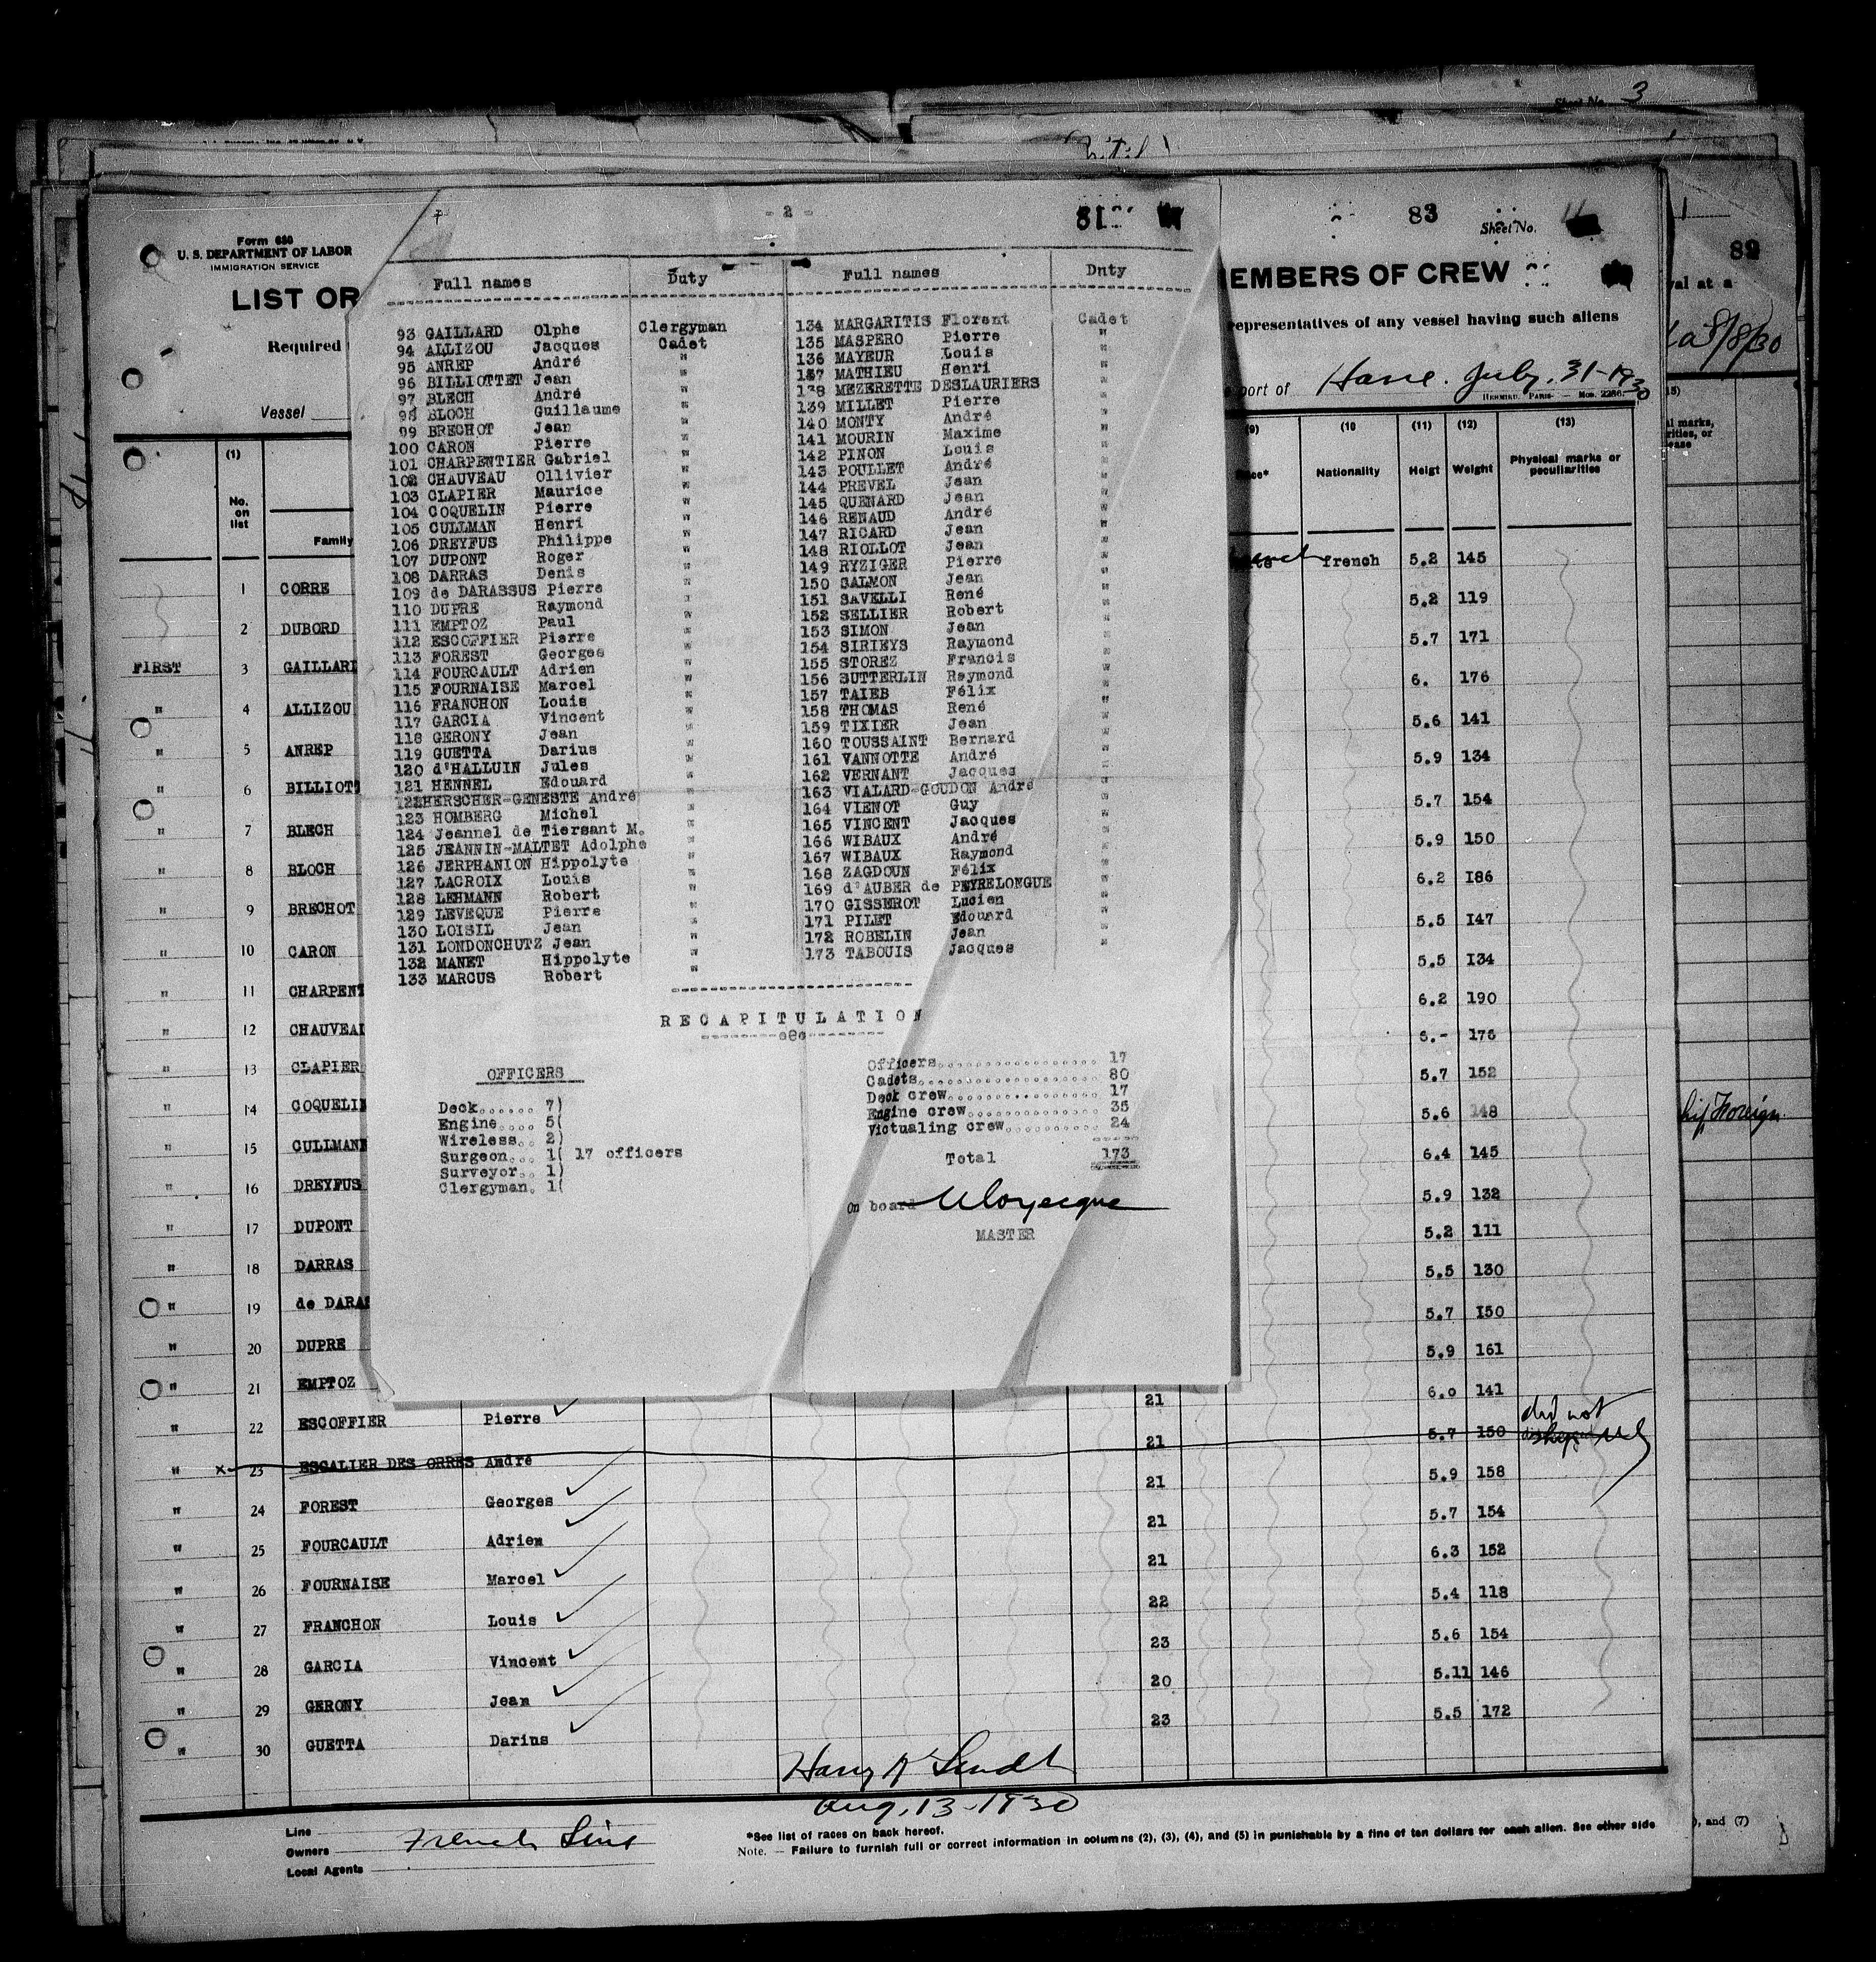 Sheet No. 3
83
Sheet No.
82
Form 680
U. S. DEPARTMENT OF LABOR
IMMIGRATION SERVICE
LIST OR
EMBERS OF CREW
Required
representatives of any vessel having such aliens
val at a
8/8/30
Vessel
port of Havre. July. 31-1930
HERMIEU. PARIS
- 2 -
81
Full names Duty Full names Dnty
93 GAILLARD Olphe Clergyman
94 ALLIZOU Jacques Cadet
95 ANREP André "
96 BILLIOTTET Jean
97 BLECH André "
98 BLOCH Guillaume "
99 BRECHOT Jean "
100 CARON Pierre "
101 CHARPENTIER Gabriel "
102 CHAUVEAU Ollivier "
103 CLAPIER Maurice "
104 COQUELIN Pierre "
105 CULLMAN Henri "
106 DREYFUS Philippe "
107 DUPONT Roger "
108 DARRAS Denis "
109 de DARASSUS Pierre "
110 DUPRE Raymond "
111 EMPTOZ Paul "
112 ESCOFFIER Pierre "
113 FOREST Georges "
114 FOURCAULT Adrien "
115 FOURNAISE Marcel "
116 FRANCHON Louis "
117 GARCIA Vincent "
118 GERONY Jean "
119 GUETTA Darius "
120 d'HALLUIN Jules "
121 HENNEL Edouard "
122HERSCHER-GENESTE André "
123 HOMBERG Michel "
124 Jeannel de Tiersant M. "
125 JEANNIN-MALTET Adolphe "
126 JERPHANION Hippolyte "
127 LACROIX Louis "
128 LEHMANN Robert "
129 LEVEQUE Pierre "
130 LOISIL Jean "
131 LONDONCHUTZ Jean "
132 MANET Hippolyte "
133 MARCUS Robert "
134 MARGARITIS Florent Cadet
135 MASPERO Pierre "
136 MAYEUR Louis "
137 MATHIEU Henri "
138 MEZERETTE DESLAURIERS "
139 MILLET Pierre "
140 MONTY André "
141 MOURIN Maxime "
142 PINON Louis "
143 POULLET André "
144 PREVEL Jean "
145 QUENARD Jean "
146 RENAUD André "
147 RICARD Jean "
148 RIOLLOT Jean "
149 RYZIGER Pierre "
150 SALMON Jean "
151 SAVELLI René "
152 SELLIER Robert "
153 SIMON Jean "
154 SIRIEYS Raymond "
155 STOREZ Francis "
156 SUTTERLIN Raymond "
157 TAIEB Félix "
158 THOMAS René "
159 TIXIER Jean "
160 TOUSSAINT Bernard "
161 VANNOTTE André "
162 VERNANT Jacques "
163 VIALARD-GOUDON André "
164 VIENOT Guy "
165 VINCENT Jacques "
166 WIBAUX André "
167 WIBAUX Raymond "
168 ZAGDOUN Félix "
169 d'AUBER de PEYRELONGUE "
170 GISSEROT Lucien "
171 PILET Edouard "
172 ROBELIN Jean "
173 TABOUIS Jacques "
RECAPITULATION
OFFICERS
Deck...... 7)
Engine.... 5(
Wireless.. 2)
Surgeon... 1( 17 officers
Surveyor.. 1)
Clergyman. 1(
Officers.................. 17
Cadets.................... 80
Deck crew................. 17
Engine crew............... 35
Victualing crew........... 24
Total 173
On board
MASTER
(1) (9) (10 (11) (12) (13)
No. on list
Family
Nationality Heigt Weight Physical marks or peculiarities
french 5.2 145
1 CORRE 5.2 119
2 DUBORD 5.7 171
FIRST 3 GAILLARD 6. 176
" 4 ALLIZOU 5.6 141
" 5 ANREP 5.9 134
" 6 BILLIOTT 5.7 154
" 7 BLECH 5.9 150
" 8 BLOCH 6.2 I86
" 9 BRECHOT 5.5 I47
" 10 CARON 5.5 I34
" 11 CHARPENT 6.2 190
" 12 CHAUVEAU 6.- 176
" 13 CLAPIER 5.7 152
" 14 COQUELIN 5.6 148
" 15 CULLMANN 6.4 145
" 16 DREYFUS 5.9 132
" 17 DUPONT 5.2 111
" 18 DARRAS 5.5 130
" 19 de DARAS 5.7 I50
" 20 DUPRE 5.9 161
" 21 EMPTOZ 21 6.0 141
" 22 ESCOFFIER Pierre 21 5.7 150 did not
" x 23 ESCALIER DES ORRES André 21 5.9 158
" 24 FOREST Georges 21 5.7 154
" 25 FOURCAULT Adrien 21 6.3 152
" 26 FOURNAISE Marcel 22 5.4 118
" 27 FRANCHON Louis 23 5.6 154
" 28 GARCIA Vincent 20 5.11 146
" 29 GERONY Jean 23 5.5 172
" 30 GUETTA Darius
Aug. 13-1930
Line
Owners French Line
Local Agents
*See list of races on back hereof.
Note. — Failure to furnish full or correct information in columns (2), (3), (4), and (5) in punishable by a fine of ten dollars for each alien. See other side
), and (7)
Foreign